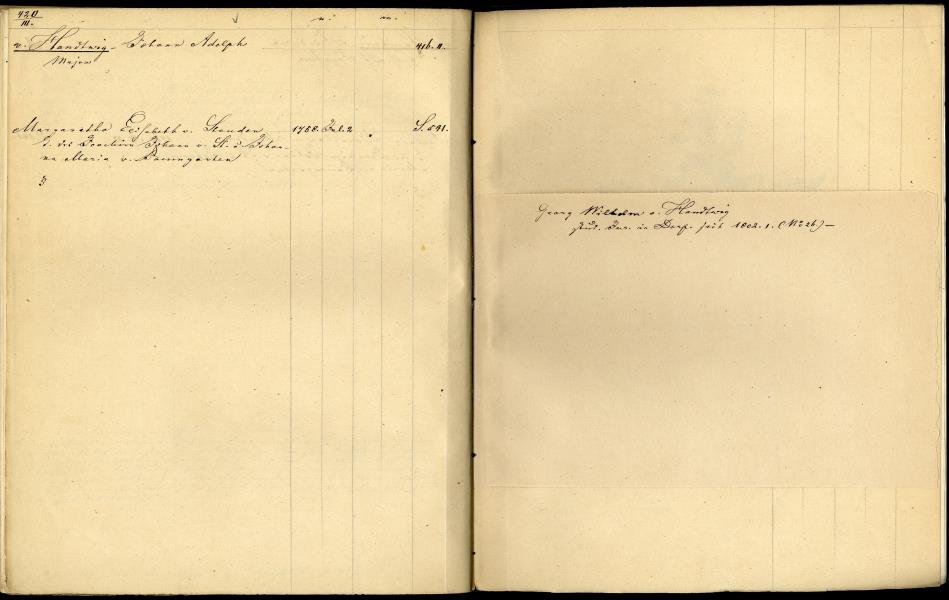 420
III.
n. m.
v. Handtwig – Johann Adolph 416. II.
Major
Margaretha Elisabeth v. Stauden 1758. Jul. 2 S. 591.
t. des Joachim Johann v. St. u Johan-
na Maria v. Baumgarten
Georg Wilhelm v. Handtwig
stud. Jur. in Dorp. seit 1802. I. (No 26) —